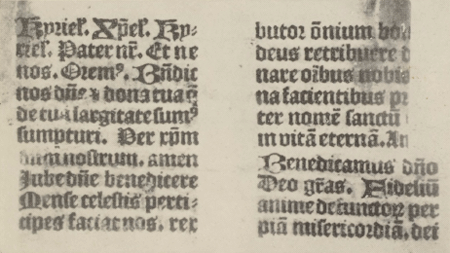 Kyriel̄. Xp̄el̄. Ky-
riel̄. Pater nr̄. Et ne
nos. Orem⁹. Bn̄dic
nos dn̄e ⁊ dona tua q̄
de tua largitate sum⁹
sumpturi. Per xp̄m
dn̄m nostrum. amen
Jube dn̄e benedicere
Mense celestis perti-
cipes faciat nos. rex
butor ōnium bo
deus retribuere d
nare oībus nobis
na facientibus pr
ter nomē sanctū
in vitā eternā. Am
Benedicamus dn̄o
Deo gr̄as. Fideliū
anime defunctoꝝ per
piā misericordiā. dei